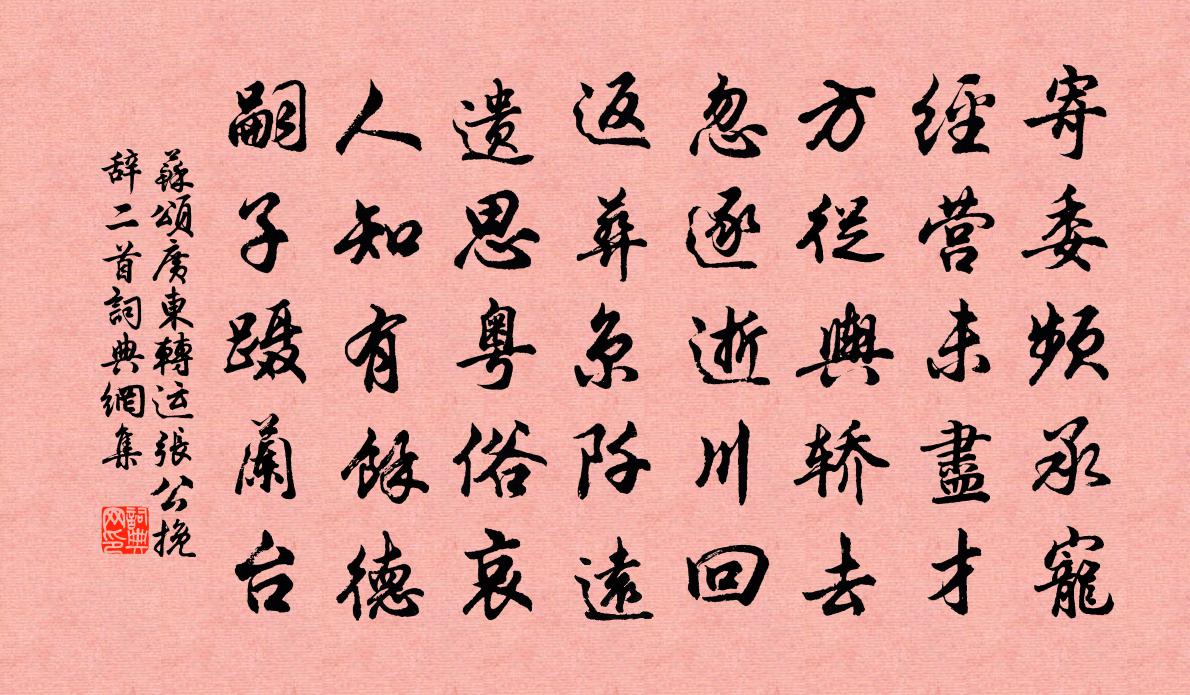 寄委频承寵
經营未盡才
方從輿轿去
忽逐逝川回
返葬京阡遠
遗思粤俗哀
人知有餘德
嗣子蹑蘭台
蘇頌廣東轉运張公挽
辞二首詞典網集
詞典网印